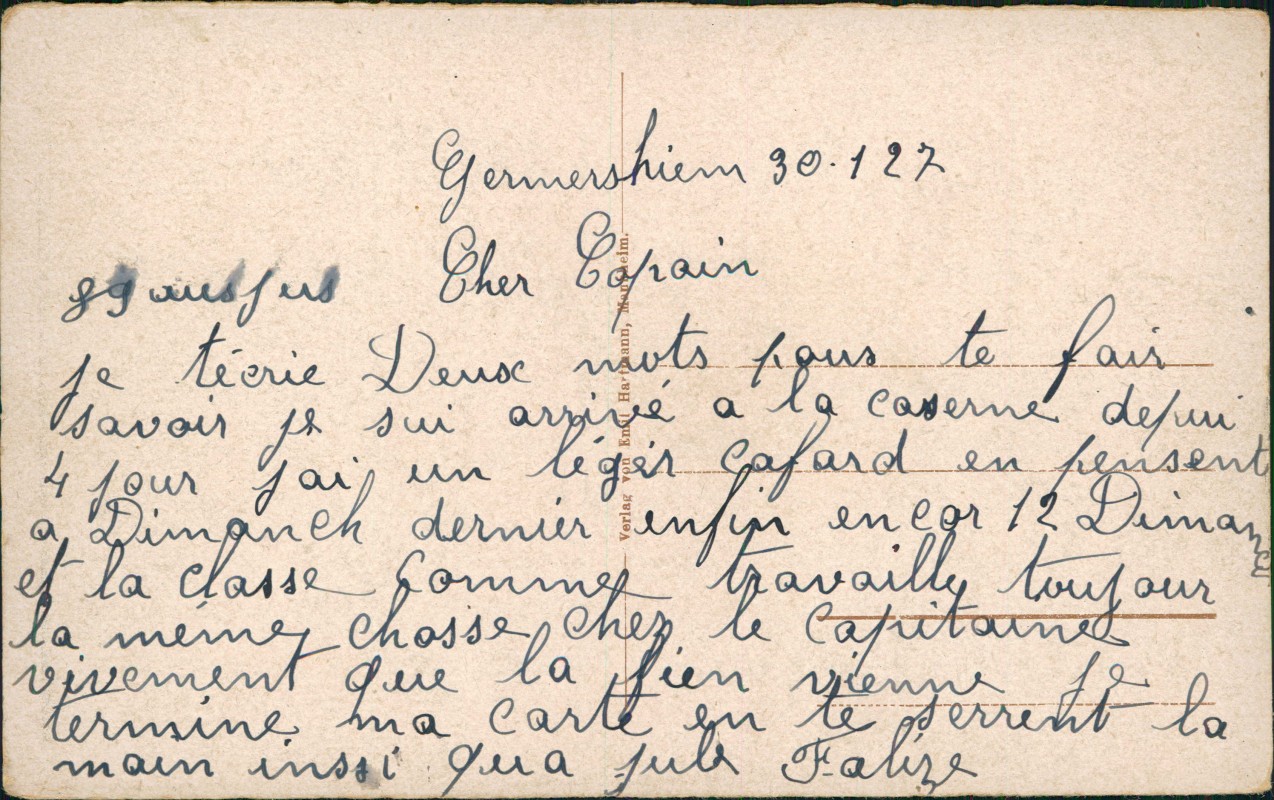 Germershiem 30.1 27
Cher Copain
je técrie Deux mots pous te fair
savoir je sui arrivé a la caserne depui
4 jour jai un légér cafard en pensent
a Dimanch dernier enfin encor 12 Dimanch
et la classe Comme travailly toujour
la méme chosse chez le Capitaine
vivement que la fien vienne je
termine ma carte en te serrent la
main inssi qua jule Falize
Verlag von Emil Hartmann, Mannheim.